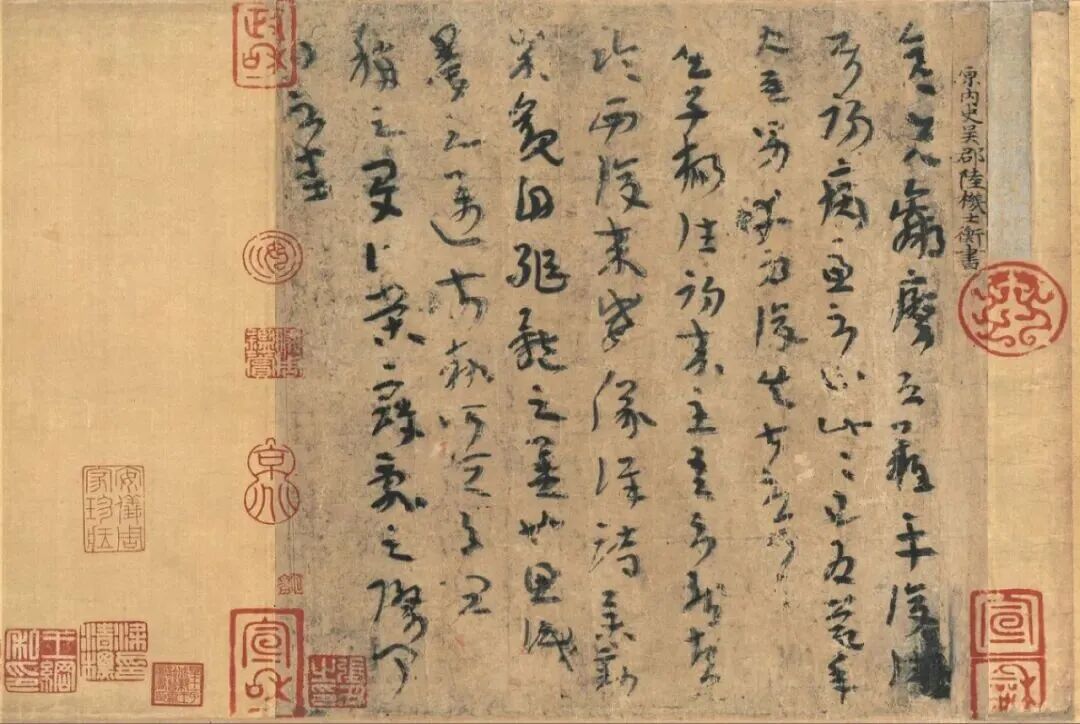 原內史吳郡陸機士衡書
彦先羸瘵恐難平復往屬
初病慮不止此此已為慶承
使唯男幸為復失前憂耳
吳子楊往初來主吾不能盡
臨西復來威儀詳跱舉動
成觀自軀體之美也思識
量之邁前執所恒有宜
稱之夏伯榮寇亂之際聞
問不悉
政和
宣和
宣和
張丑之印
安儀周家珍藏